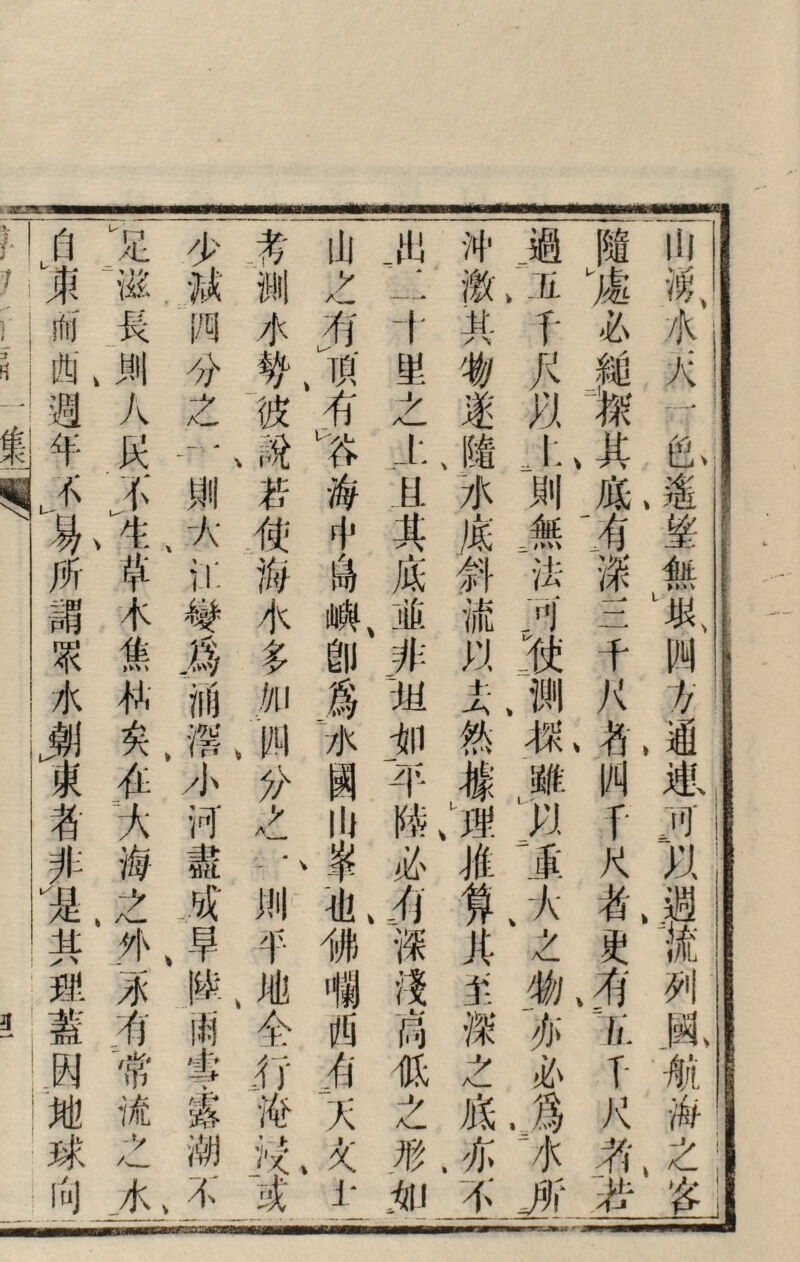 山湧、水天一色、遙望無垠、四方通連、可以週流列國、航海之客
隨處必縋探其底、有深三千尺者、四千尺者、更有五千尺者、若
過五千尺以上、則無法可使測探、雖以重大之物、亦必爲水所
沖激、其物遂隨水底斜流以去、然據理推算、其至深之底、亦不
出二十里之上、且其底並非坦如平陸、必有深淺高低之形、如
山之有頂有谷海中島嶼、卽爲水國山峯也、佛囒西有天文士
考測水勢、彼說若使海水多加四分之一、則平地全行淹浸、或
少減四分之一、則大江變爲涌澢、小河盡成旱陸、雨雪露潮不
足滋長則人民不生、草木焦枯矣、在大海之外、永有常流之水、
自東而西、週年不易、所謂眾水朝東者非是、其理蓋因地球向
集